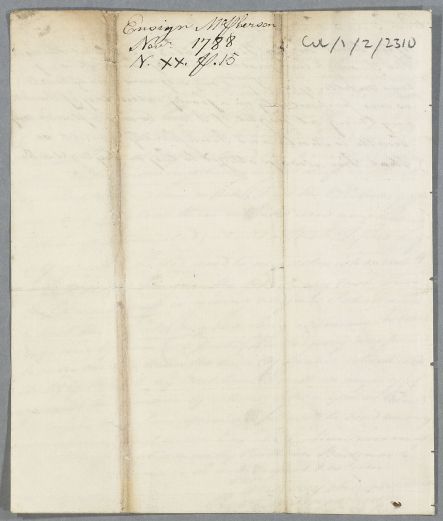 Ensign McPherson
Novr. 1788
N. XX. p. 15
Col/1/2/2310